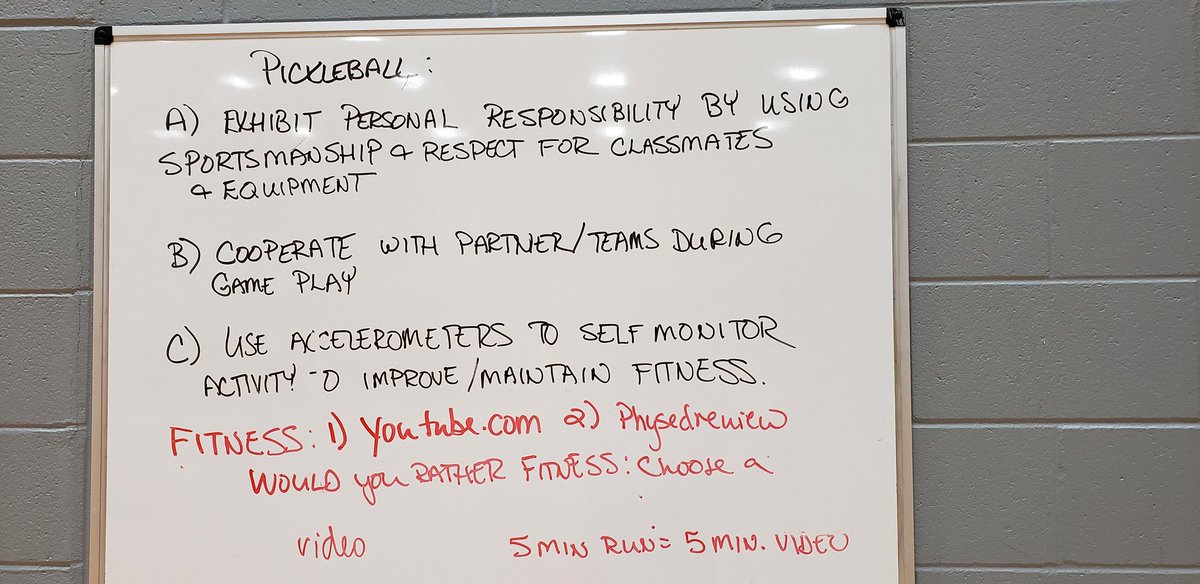 PICKLEBALL:
A) EXHIBIT PERSONAL RESPONSIBILITY BY USING
SPORTSMANSHIP & RESPECT FOR CLASSMATES
& EQUIPMENT
B) COOPERATE WITH PARTNER/TEAMS DURING
GAME PLAY
C) USE ACCELEROMETERS TO SELF MONITOR
ACTIVITY -O IMPROVE/MAINTAIN FITNESS.
FITNESS: 1) Youtube.com 2) Physedreview
WOULD you RATHER FITNESS: Choose a
video
5 MIN RUN = 5 MIN. VIDEO